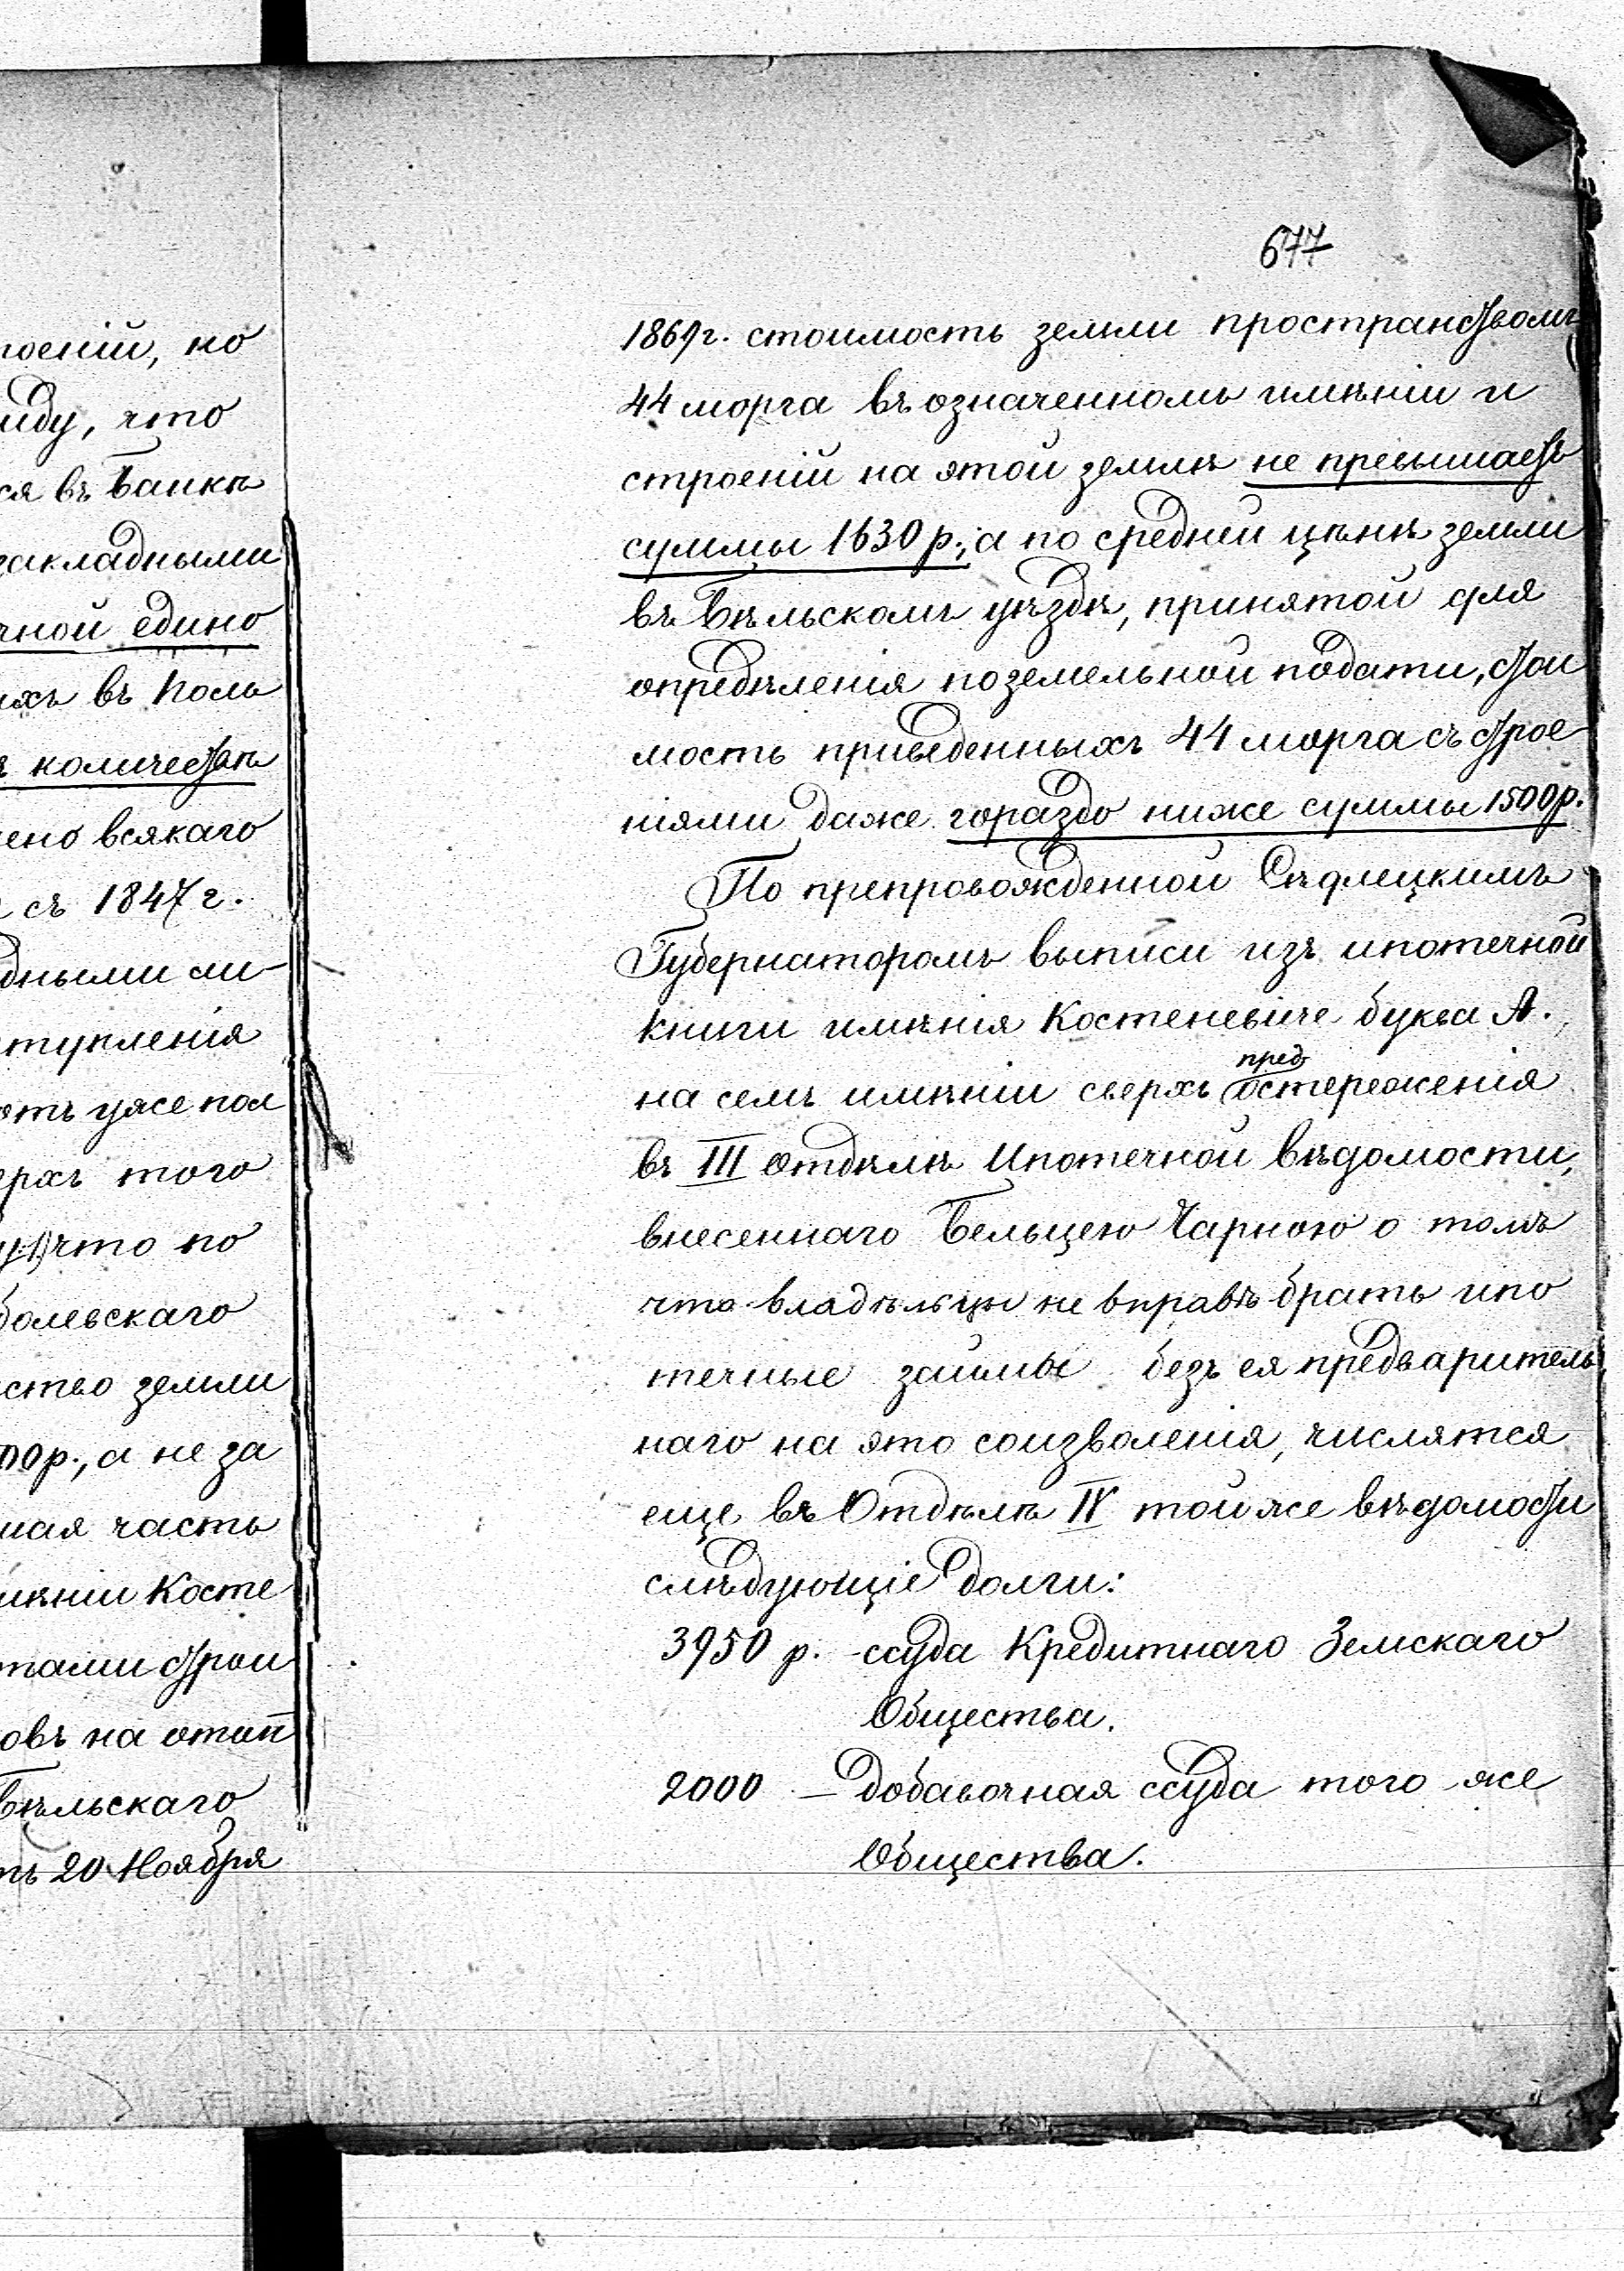 677
роеній, но
виду, что
ся въ Банкѣ
закладными
чной едино
ихъ въ поль
количествѣ
чено всякаго
съ 1847 г.
дными ли-
ступленія
отъ уже пол
ерхъ того
что по
болевскаго
ство земли
00р., а не за
мая часть
мѣніи Косте
тами строи
овъ на отоп
Бѣльскаго
тъ 20 Ноября
1869 г. стоимость земли пространствомъ
44 морга въ означенномъ имѣніи и
строеній на этой землѣ не превышаетъ
суммы 1630 р.; а по средней цѣнѣ земли
въ Бѣльскомъ уѣздѣ, принятой для
опредѣленія поземельной подати, стои
мость приведенныхъ 44 морга съ строе
ніями даже гораздо ниже суммы 1500р.
По препровожденной Сѣдлецкимъ
Губернаторомъ выписи изъ ипотечной
книги имѣнія Костеневиче буква А.
на семъ имѣніи сверхъ предостереженія
въ III отдѣлѣ Ипотечной вѣдомости,
внесеннаго Бельцею Чарною о томъ
что владѣльцы не вправѣ брать ипо
течные займы безъ ея предваритель
наго на это соизволенія, числятся
еще въ Отдѣлѣ IV той же вѣдомости
слѣдующіе долги:
3950 р. – ссуда Кредитнаго Земскаго
Общества.
2000 – добавочная ссуда того же
Общества.